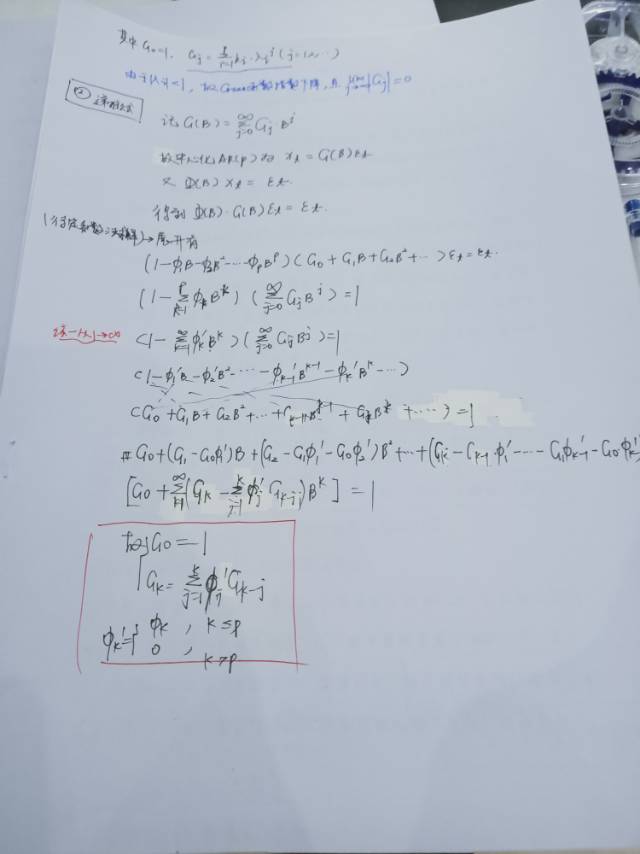 其中 G₀=1, Gⱼ = Σ kᵢ·λᵢʲ (j=1,2,…)
由于|λᵢ|<1, 故Green函数 下降, 且 lim |Gⱼ|=0
② 递推公式
记 G(B) = Σ_{j=0}^{∞} Gⱼ Bʲ
故中心化AR(p)为 xₜ = G(B)εₜ
又 Φ(B) xₜ = εₜ
得到 Φ(B)·G(B)εₜ = εₜ
(待定系数法) → 展开有
(1-φ₁B-φ₂B²-…-φₚBᵖ)(G₀+G₁B+G₂B²+…)εₜ=εₜ
(1-Σ_{k=1}^{p} φₖBᵏ)(Σ_{j=0}^{∞} GⱼBʲ)=1
(1-Σ_{k=1}^{∞} φₖ'Bᵏ)(Σ_{j=0}^{∞} GⱼBʲ)=1
(1-φ₁'B-φ₂'B²-…-φₖ₋₁'Bᵏ⁻¹-φₖ'Bᵏ-…)
(G₀+G₁B+G₂B²+…+Gₖ₋₁Bᵏ⁻¹+GₖBᵏ+…)=1
G₀+(G₁-G₀φ₁')B+(G₂-G₁φ₁'-G₀φ₂')B²+…+(Gₖ-Gₖ₋₁φ₁'-…-G₁φₖ₋₁'-G₀φₖ'
[G₀+Σ^{∞}(Gₖ-Σ_{j=1}^{k} φⱼ'Gₖ₋ⱼ)Bᵏ]=1
G₀=1
Gₖ=Σ_{j=1}^{k} φⱼ'Gₖ₋ⱼ
φₖ'={ φₖ, k≤p
0, k>p